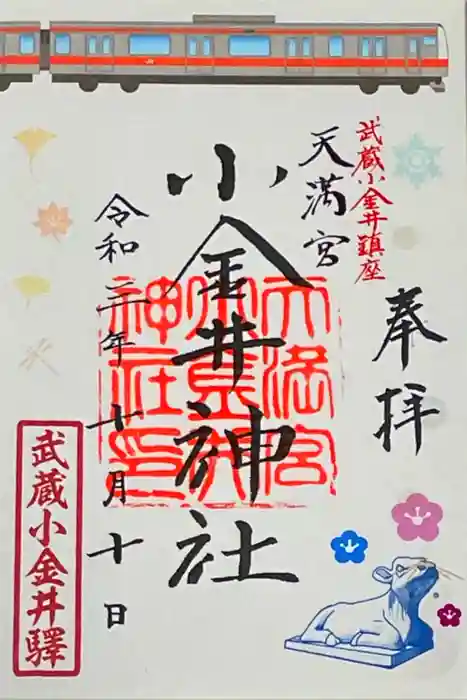 武蔵小金井鎮座
奉拝
天満宮
小金井神社
天満宮
小金井
神社印
令和二年十月十日
武蔵小金井驛